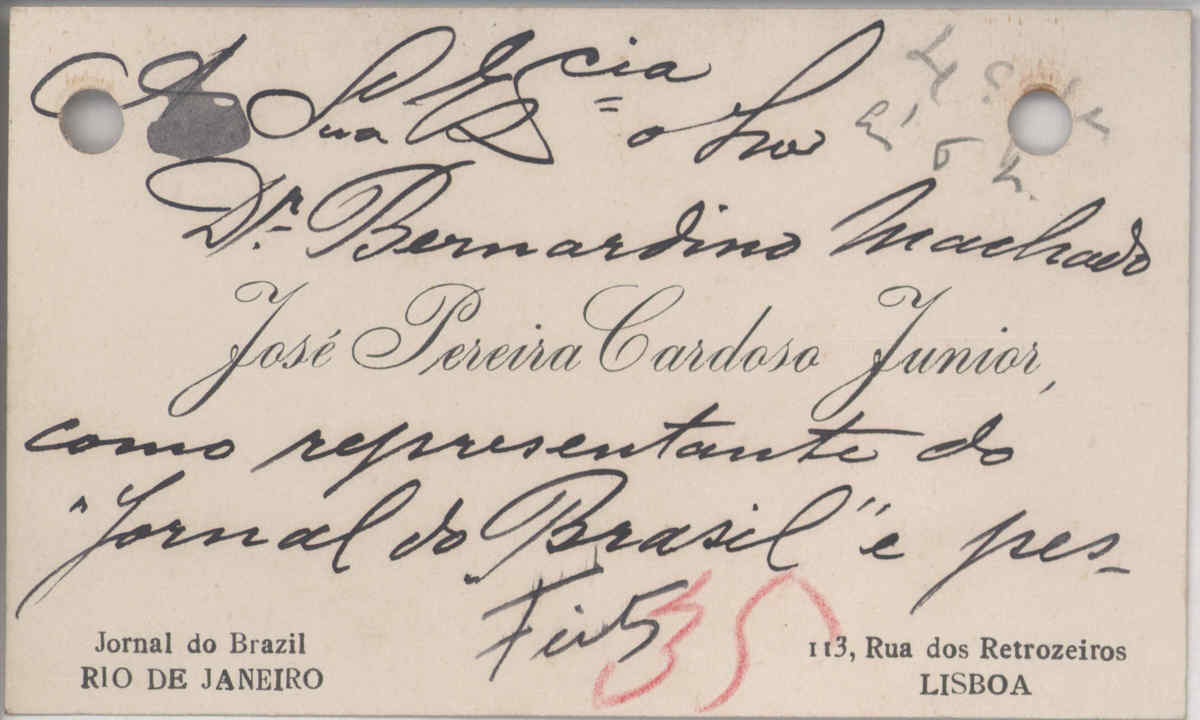 A Sua Excia o Snr
Dr. Bernardino Machado
José Pereira Cardoso Junior,
como representante do
"Jornal do Brasil" e pes-
Jornal do Brazil
RIO DE JANEIRO
113, Rua dos Retrozeiros
LISBOA